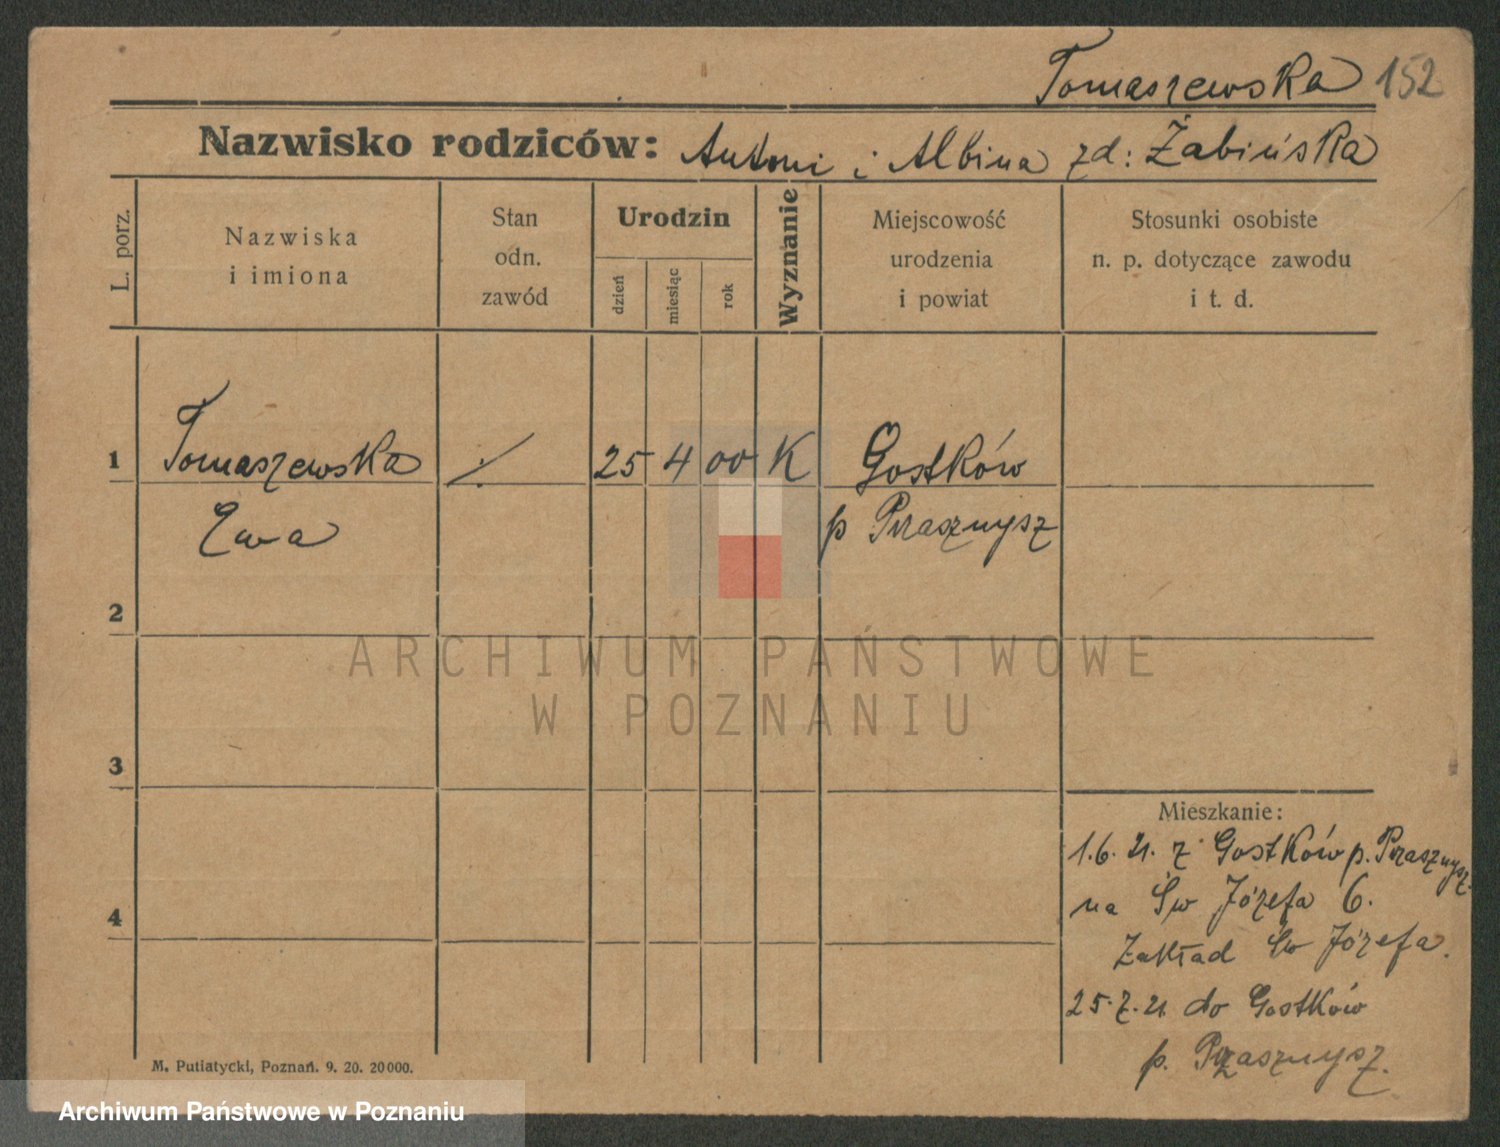 Tomaszewska 152
Nazwisko rodziców: Antoni i Albina zd: Żabińska
L. porz.
Nazwiska
i imiona
Stan
odn.
zawód
Urodzin
dzień
miesiąc
rok
Wyznanie
Miejscowość
urodzenia
i powiat
Stosunki osobiste
n. p. dotyczące zawodu
i t. d.
1 Tomaszewska 25 4 00 K Gostków
Ewa p Przasznysz
2
3
4
ARCHIWUM PAŃSTWOWE
W POZNANIU
Mieszkanie:
1.6.21. z Gostków p. Przasznysz.
na Św Józefa 6.
Zakład Św Józefa.
25.7.21 do Gostków
p. Przasznysz.
M. Putiatycki, Poznań. 9. 20. 20000.
Archiwum Państwowe w Poznaniu